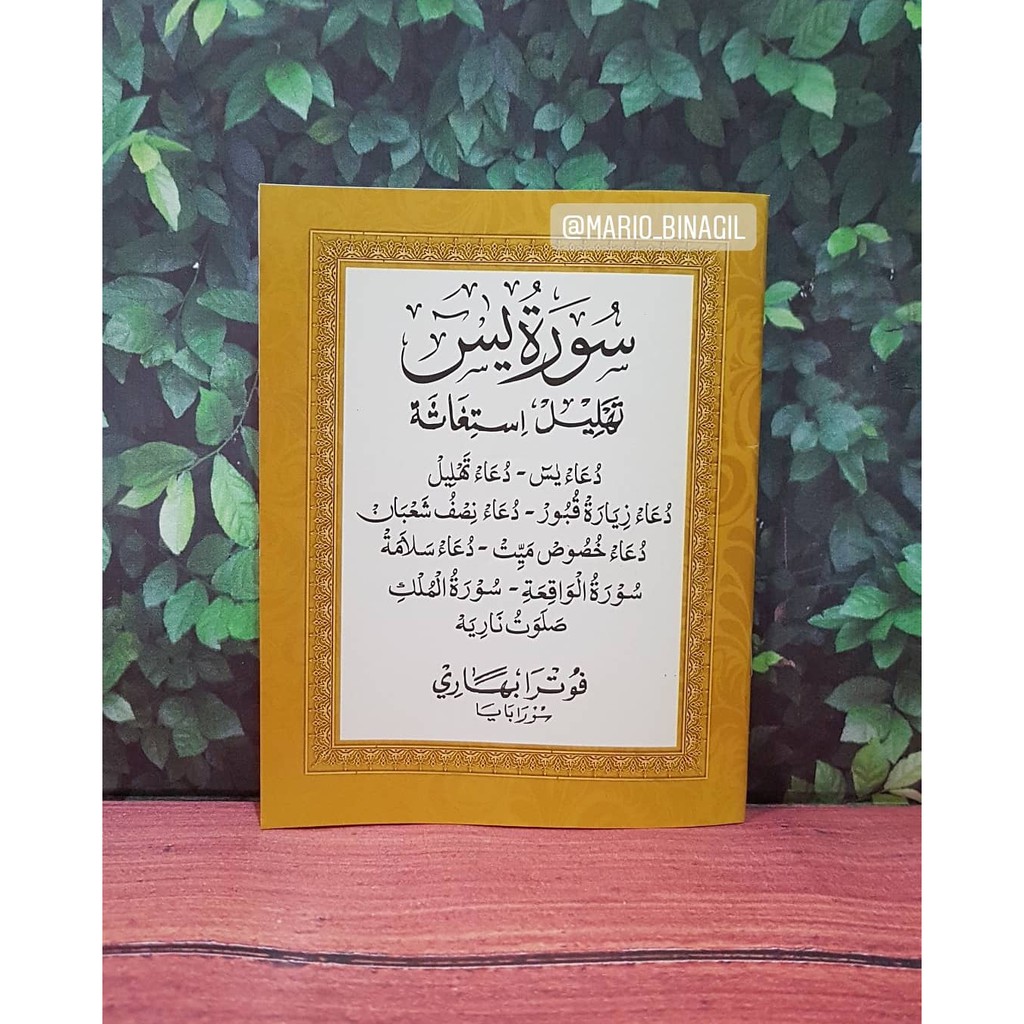 @MARIO_BINAGIL
سُوْرَةُ يٰسٓ
تَهْلِيْلْ اِسْتِغَاثَة
دُعَاءْ يٰسٓ - دُعَاءْ تَهْلِيْلْ
دُعَاءْ زِيَارَةْ قُبُوْرْ - دُعَاءْ نِصْفُ شَعْبَانْ
دُعَاءْ خُصُوْصْ مَيِّتْ - دُعَاءْ سَلَامَةْ
سُوْرَةُ الْوَاقِعَةِ - سُوْرَةُ الْمُلْكِ
صَلَوَتُ نَارِيَه
فُوْتْرَا بهَارِيْ
سُوْرَابَايَا